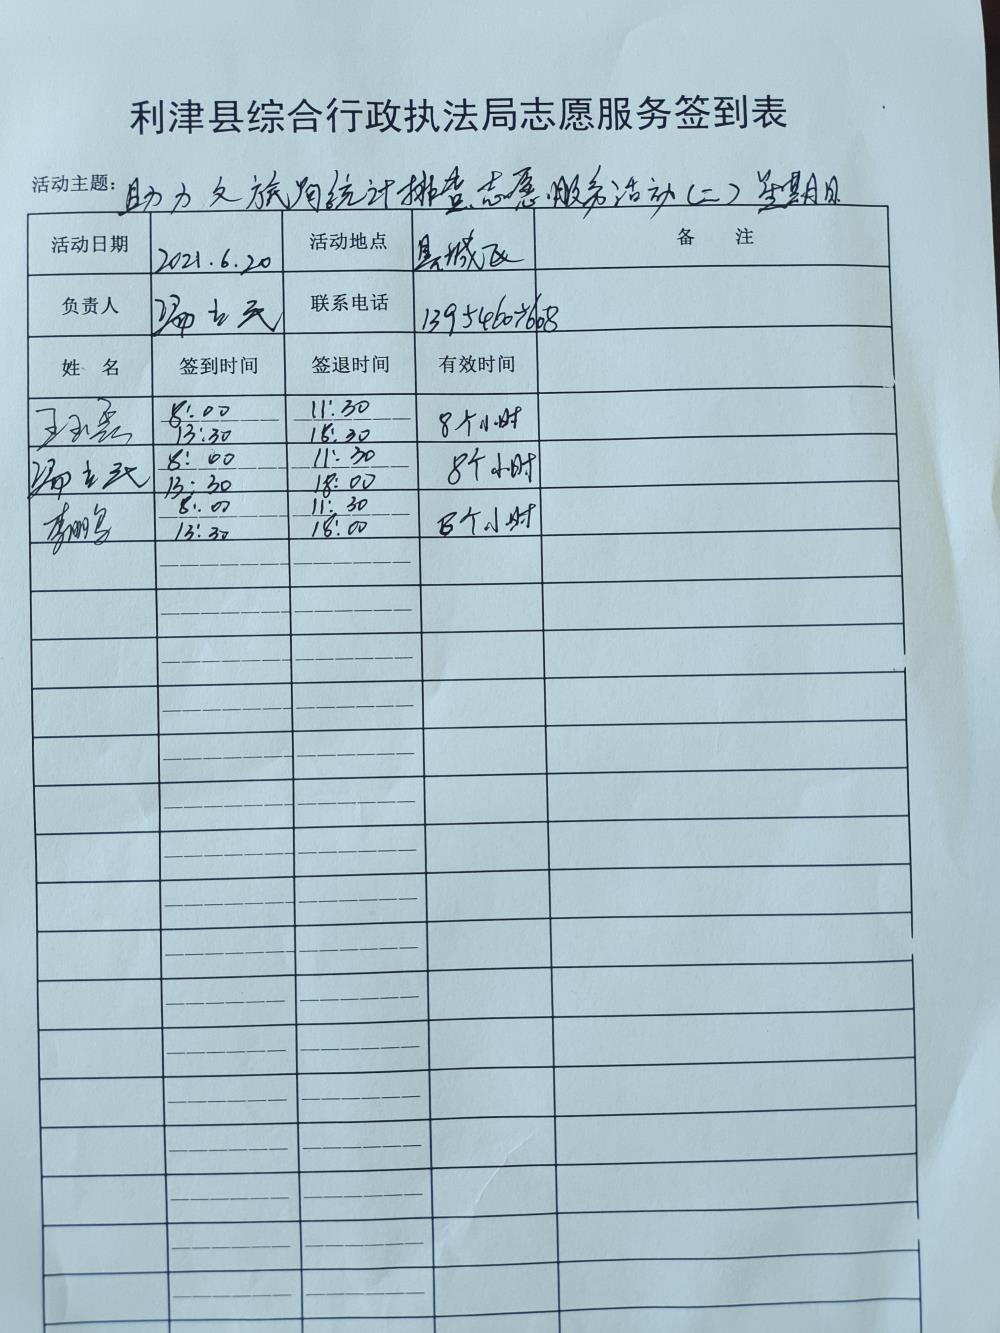 利津县综合行政执法局志愿服务签到表
活动主题：助力文旅局统计排查志愿服务活动(二)星期日
活动日期 2021.6.20 活动地点 县城区 备 注
负责人 联系电话
姓 名 签到时间 签退时间 有效时间
8:00 11:30
13:30 18:30 8个小时
8:00 11:30
13:30 18:00 8个小时
8:00 11:30
李鹏 13:30 18:00 8个小时